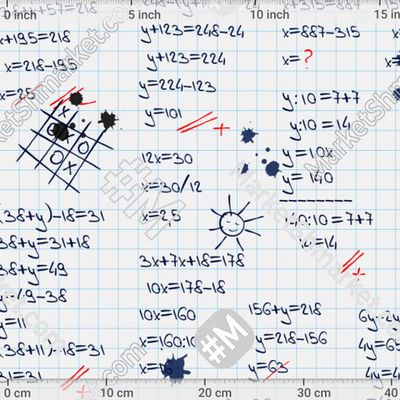 0 inch
5 inch
10 inch
15 in
x+195=218
x=218-195
x=25
x
x
o
o
x
(38+y)-18=31
38+y=31+18
38+y=49
y=49-38
y=11
(38+11)-18=31
31=31
y+123=248-24
y+123=224
y=224-123
y=101
12x=30
x=30/12
x=2,5
3x+7x+18=178
10x=178-18
10x=160
x=160:10
x=887-315
x=?
y:10=7+7
y:10=14
y=10x
y=140
140:10=7+7
14=14
156+y=218
y=218-156
y=63
6y-2y
4y=6
4y
#M
MarketShmarket.com
0 cm
10 cm
20 cm
30 cm
40 c